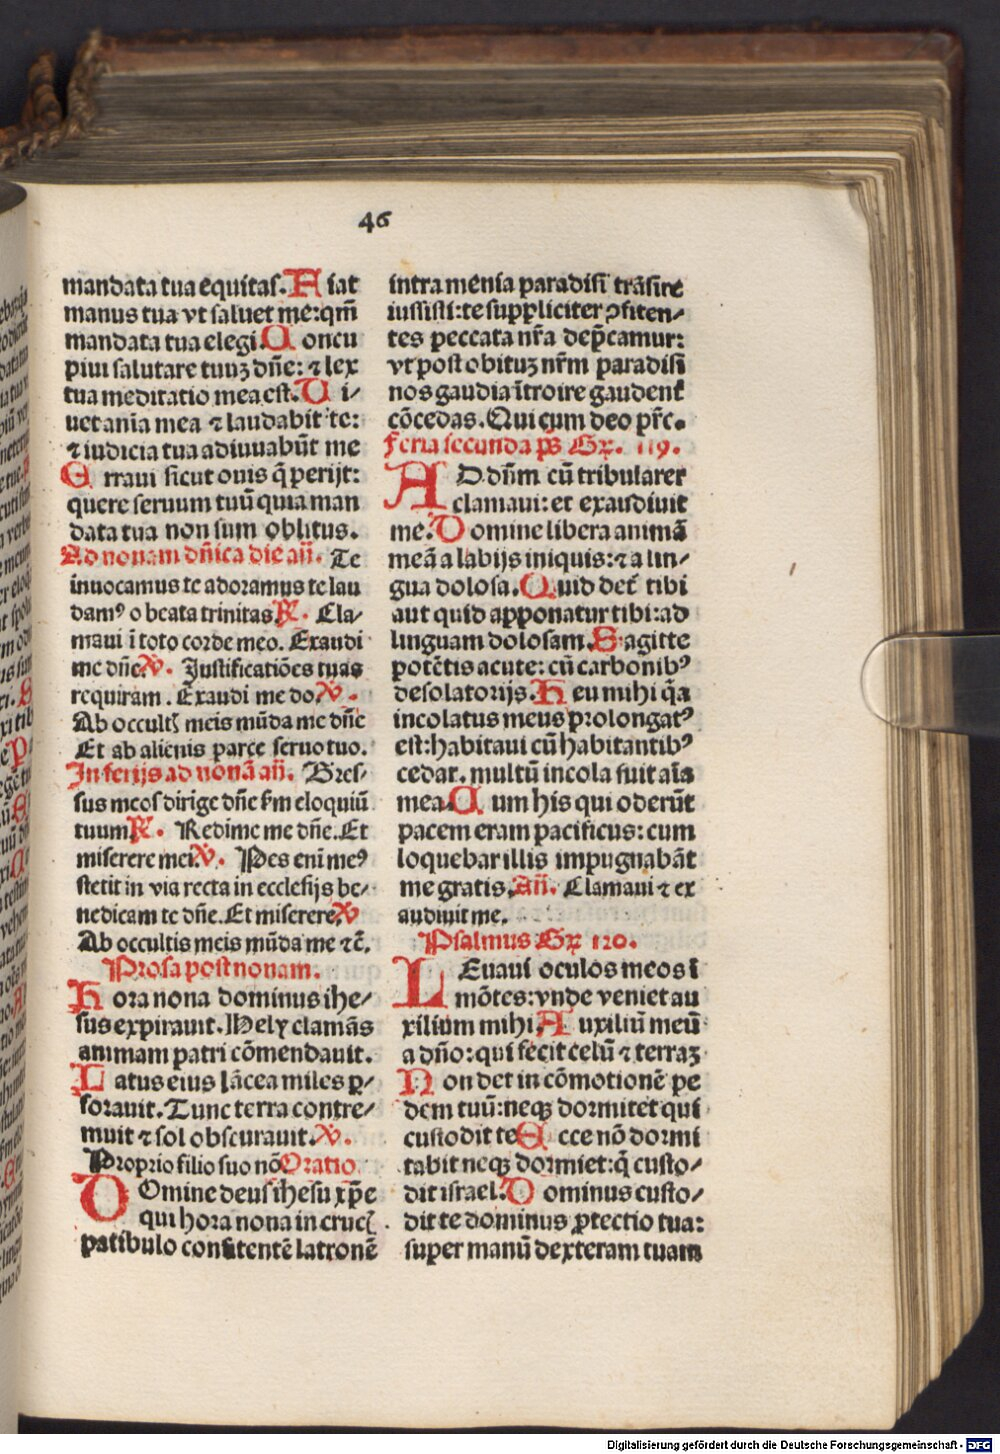 46
mandata tua equitas. Fiat
manus tua vt saluet me:qm̄
mandata tua elegi Concu
piui salutare tuuꝫ dn̄e: ⁊ lex
tua meditatio mea est. Ui-
uet ania mea ⁊ laudabit te:
⁊ iudicia tua adiuuabūt me
Erraui sicut ouis q̄ perijt:
quere seruum tuū quia man
data tua non sum oblitus.
Ad nonam dn̄ica die an̄. Te
inuocamus te adoramus te lau
damꝰ o beata trinitas ℟. Cla-
maui ī toto corde meo. Exaudi
me dn̄e ℣. Justificatiōes tuas
requiram. Exaudi me do. ℣.
Ab occultꝭ meis mūda me dn̄e
Et ab alienis parce seruo tuo.
In ferijs ad nonā an̄. Gres-
sus meos dirige dn̄e ẜm eloquiū
tuum ℟. Redime me dn̄e. Et
miserere mei ℣. Pes enī meꝰ
stetit in via recta in ecclesijs be-
nedicam te dn̄e. Et miserere ℣
Ab occultis meis mūda me ⁊c̄.
Prosa post nonam.
Hora nona dominus ihe-
sus expirauit. Hely clamās
animam patri cōmendauit.
Latus eius lācea miles ꝑ-
forauit. Tunc terra contre-
muit ⁊ sol obscurauit. ℣.
Proprio filio suo nō Oratio
DOmine deus ihesu xp̄e
qui hora nona in crucꝭ
patibulo confitentē latronē
intra menia paradisi trāsire
iussisti:te suppliciter ꝯfiten-
tes peccata nr̄a dep̄camur:
vt post obituꝫ nr̄m paradisi
nos gaudia ītroire gaudent̄
cōcedas. Qui cum deo pr̄e.
Feria secunda ps̄ Gꝝ. 119.
AD dn̄m cū tribularer
clamaui: et exaudiuit
me. Domine libera animā
meā a labijs iniquis:⁊ a lin-
gua dolosa. Quid det̄ tibi
aut quid apponatur tibi:ad
linguam dolosam. Sagitte
potētis acute: cū carbonibꝰ
desolatorijs. Heu mihi q̄a
incolatus meus prolongatꝰ
est:habitaui cū habitantibꝰ
cedar. multū incola fuit aīa
mea. Cum his qui oderūt
pacem eram pacificus: cum
loquebar illis impugnabāt
me gratis. An̄. Clamaui ⁊ ex
audiuit me.
Psalmus Gꝝ 120.
LEuaui oculos meos ī
mōtes:vnde veniet au
xilium mihi. Auxiliū meū
a dn̄o:qui fecit celū ⁊ terraꝫ
Non det in cōmotionē pe
dem tuū:neqꝫ dormitet qui
custodit te Ecce nō dormi
tabit neqꝫ dormiet:q̄ custo-
dit israel. Dominus custo-
dit te dominus ꝓtectio tua:
super manū dexteram tuam
Digitalisierung gefördert durch die Deutsche Forschungsgemeinschaft - DFG